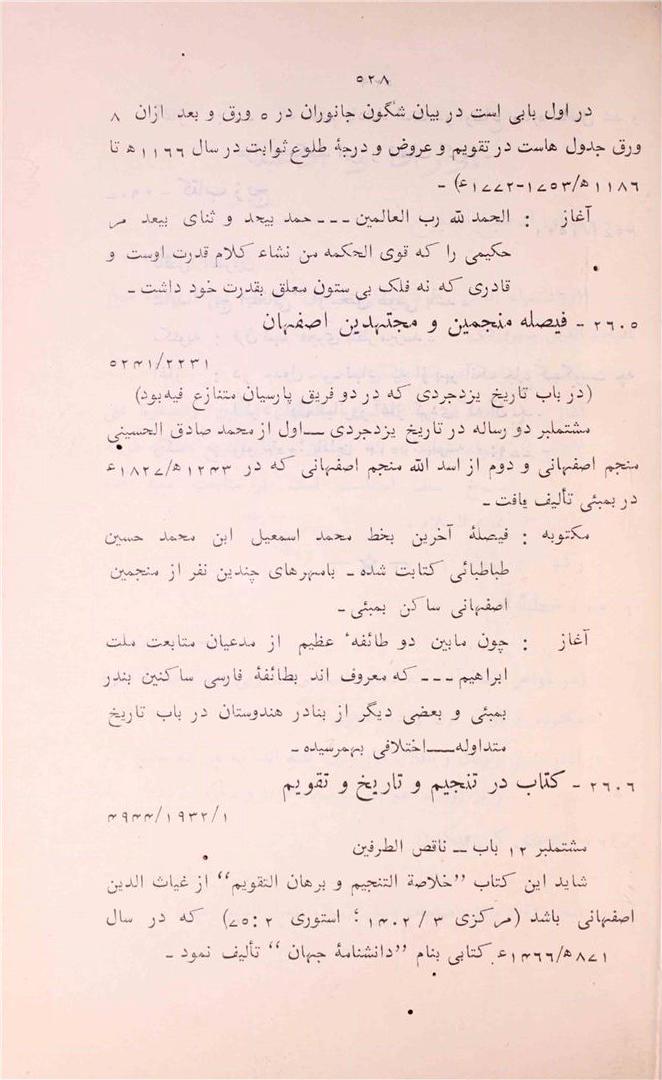 ٥٢٨
در اول بابی است در بیان شگون جانوران در ٥ ورق و بعد ازان ٨
ورق جدول هاست در تقویم و عروض و درجهٔ طلوع ثوابت در سال ١١٦٦ه تا
١١٨٦ه/١٧٥٣-١٧٧٢ء) ـ
آغاز : الحمد لله رب العالمین ـ ـ ـ حمد بیحد و ثنای بیعد مر
حکیمی را که قوی الحکمه من نشاء کلام قدرت اوست و
قادری که نه فلک بی ستون معلق بقدرت خود داشت ـ
٢٦٠٥ - فیصله منجمین و مجتهدین اصفهان
٥٢٤١/٢٢٣١
(در باب تاریخ یزدجردی که در دو فریق پارسیان متنازع فیه بود)
مشتملبر دو رساله در تاریخ یزدجردی ــ اول از محمد صادق الحسینی
منجم اصفهانی و دوم از اسد الله منجم اصفهانی که در ١٢٤٣ه/١٨٢٧ء
در بمبئی تألیف یافت ـ
مکتوبه : فیصلهٔ آخرین بخط محمد اسمعیل ابن محمد حسین
طباطبائی کتابت شده ـ بامهرهای چندین نفر از منجمین
اصفهانی ساکن بمبئی ـ
آغاز : چون مابین دو طائفهٔ عظیم از مدعیان متابعت ملت
ابراهیم ـ ـ ـ که معروف اند بطائفهٔ فارسی ساکنین بندر
بمبئی و بعضی دیگر از بنادر هندوستان در باب تاریخ
متداوله ــ اختلافی بهمرسیده ـ
٢٦٠٦ - کتاب در تنجیم و تاریخ و تقویم
٤٩٤٤/١٩٣٢/١
مشتملبر ١٢ باب ــ ناقص الطرفین
شاید این کتاب ”خلاصة التنجیم و برهان التقویم“ از غیاث الدین
اصفهانی باشد (مرکزی ٣ / ١٤٠٢ ؛ استوری ٢ : ٧٥) که در سال
٨٧١ه/١٤٦٦ء کتابی بنام ”دانشنامهٔ جهان“ تألیف نمود ـ